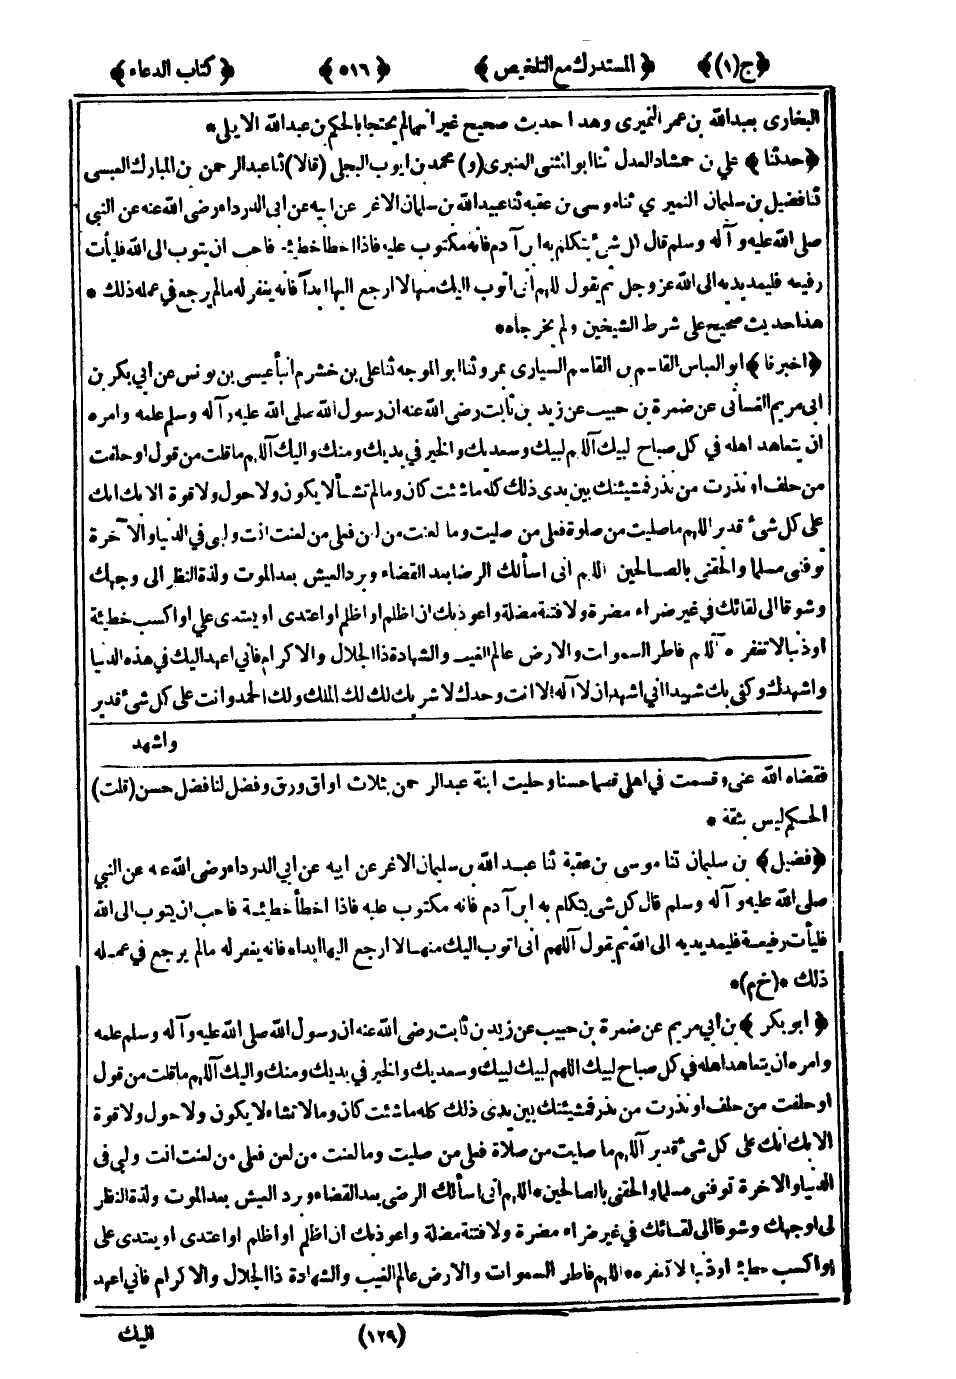 ﴿ج(١)﴾ ﴿المستدرك مع التلخيص﴾ ﴿٥١٦﴾ ﴿كتاب الدعاء﴾
البخارى بعبدالله بن عمر النميرى وهذا حديث صحيح غير انهما لم يحتجا بالحكم بن عبدالله الايلى *
﴿حدثنا﴾ علي بن حمشاد العدل ثنا ابو المثنى العنبرى (و) محمد بن ايوب البجلى (قالا) ثنا عبدالرحمن بن المبارك العبسى
ثنا فضيل بن سليمان النميري ثنا موسى بن عقبه ثنا عبيد الله بن سليمان الاغر عن ابيه عن ابى الدرداء رضى الله عنه عن النبي
صلى الله عليه وآله وسلم قال كل شئ يتكلم به ابن آدم فانه مكتوب عليه فاذا اخطأ خطيئة فاحب ان يتوب الى الله فليأت
رفيعه فليمد يديه الى الله عز وجل ثم يقول اللهم انى اتوب اليك منها لا ارجع اليها ابداً فانه يغفر له مالم يرجع في عمله ذلك *
هذا حديث صحيح على شرط الشيخين ولم يخرجاه *
﴿اخبرنا﴾ ابو العباس القاسم بن القاسم السيارى بمرو ثنا ابو الموجه ثنا على بن خشرم انبأ عيسى بن يونس عن ابي بكر بن
ابى مريم الغسانى عن ضمرة بن حبيب عن زيد بن ثابت رضى الله عنه ان رسول الله صلى الله عليه وآله وسلم علمه وامره
ان يتعاهد اهله في كل صباح لبيك اللهم لبيك وسعديك والخير في يديك ومنك واليك اللهم ما قلت من قول او حلفت
من حلف او نذرت من نذر فمشيئتك بين يدى ذلك كله ما شئت كان وما لم تشأ لا يكون ولا حول ولا قوة الا بك انك
على كل شئ قدير اللهم ما صليت من صلوة فعلى من صليت وما لعنت من لعن فعلى من لعنت انت وليى في الدنيا والآخرة
توفنى مسلما والحقنى بالصالحين اللهم انى اسألك الرضا بعد القضاء وبرد العيش بعد الموت ولذة النظر الى وجهك
وشوقا الى لقائك في غير ضراء مضرة ولا فتنة مضلة واعوذبك ان اظلم او اظلم او اعتدى او يعتدى علي او اكسب خطيئة
او ذنبا لا تغفر * اللهم فاطر السموات والارض عالم الغيب والشهادة ذا الجلال والاكرام فاني اعهد اليك في هذه الدنيا
واشهدك وكفى بك شهيدا انى اشهد ان لا آله الا انت وحدك لا شريك لك لك الملك ولك الحمد وانت على كل شئ قدير
واشهد
فقضاه الله عنى وقسمت في اهلى قسما حسنا وحليت ابنة عبدالرحمن بثلاث اواق ورق وفضل لنا فضل حسن (قلت)
الحكم ليس بثقة *
﴿فضيل﴾ بن سليمان ثنا موسى بن عقبة ثنا عبيد الله بن سليمان الاغر عن ابيه عن ابي الدرداء رضى الله عنه عن النبي
صلى الله عليه وآله وسلم قال كل شى يتكلم به ابن آدم فانه مكتوب عليه فاذا اخطأ خطيئة فاحب ان يتوب الى الله
فليأت رفيعة فليمد يديه الى الله ثم يقول اللهم انى اتوب اليك منها لا ارجع اليها ابدا ه فانه يغفر له مالم يرجع في عمله
ذلك * (خ م) *
﴿ابو بكر﴾ بن أبي مريم عن ضمرة بن حبيب عن زيد بن ثابت رضى الله عنه ان رسول الله صلى الله عليه وآله وسلم علمه
وامره ان يتعاهد اهله في كل صباح لبيك اللهم لبيك لبيك وسعديك والخير في يديك ومنك واليك اللهم ما قلت من قول
او حلفت من حلف او نذرت من نذر فمشيئتك بين يدى ذلك كله ما شئت كان وما لا تشاء لا يكون ولا حول ولا قوة
الا بك انك على كل شئ قدير اللهم ما صليت من صلاة فعلى من صليت وما لعنت من لعن فعلى من لعنت انت وليى فى
الدنيا والآخرة توفنى مسلما والحقنى بالصالحين * اللهم انى اسألك الرضى بعد القضاء وبرد العيش بعد الموت ولذة النظر
الى وجهك وشوقا الى لقائك في غير ضراء مضرة ولا فتنة مضلة واعوذبك ان اظلم او اظلم او اعتدى او يعتدى على
او اكسب خطيئة او ذنبا لا تغفره * اللهم فاطر السموات والارض عالم الغيب والشهادة ذا الجلال والاكرام فانى اعهد
(١٢٩) اليك